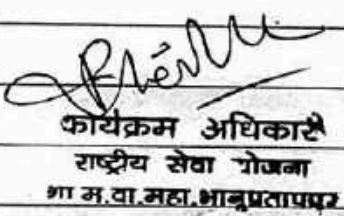 कार्यक्रम अधिकारी
राष्ट्रीय सेवा योजना
शा म.वा.महा.भानुप्रतापपुर